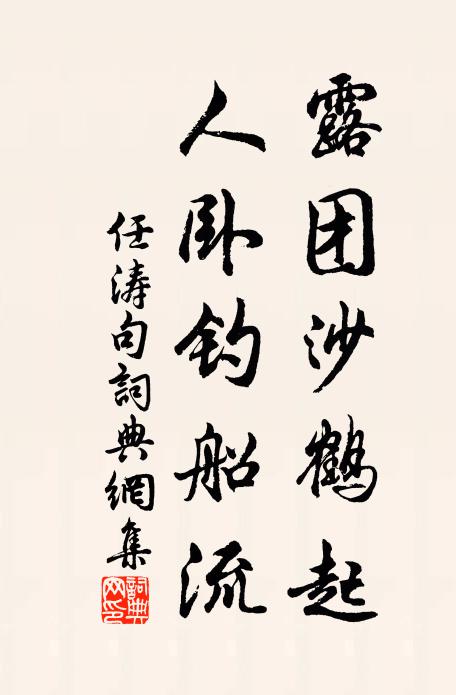 露团沙鹤起
人卧钓船流
任涛句詞典網集
詞典网印